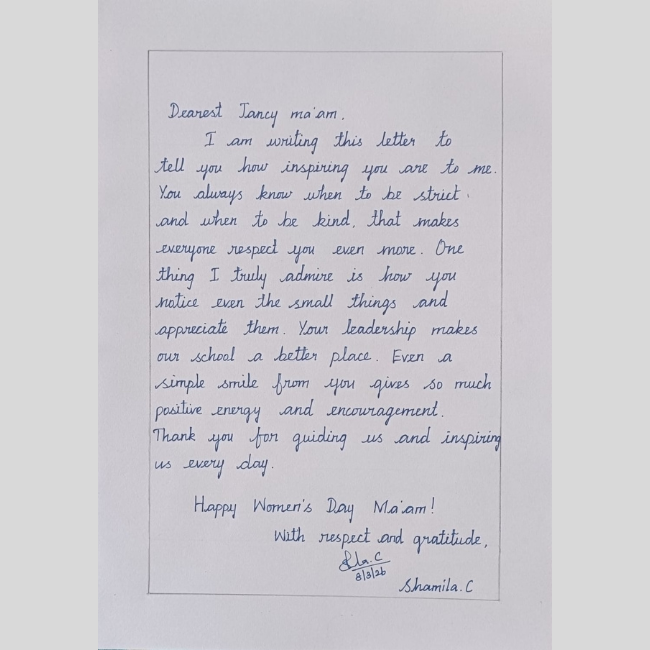 Dearest Jancy ma'am.
I am writing this letter to
tell you how inspiring you are to me.
You always know when to be strict
and when to be kind, that makes
everyone respect you even more. One
thing I truly admire is how you
notice even the small things and
appreciate them. Your leadership makes
our school a better place. Even a
simple smile from you gives so much
positive energy and encouragement.
Thank you for guiding us and inspiring
us every day.
Happy Women's Day Ma'am!
With respect and gratitude,
8/3/26
Shamila.C